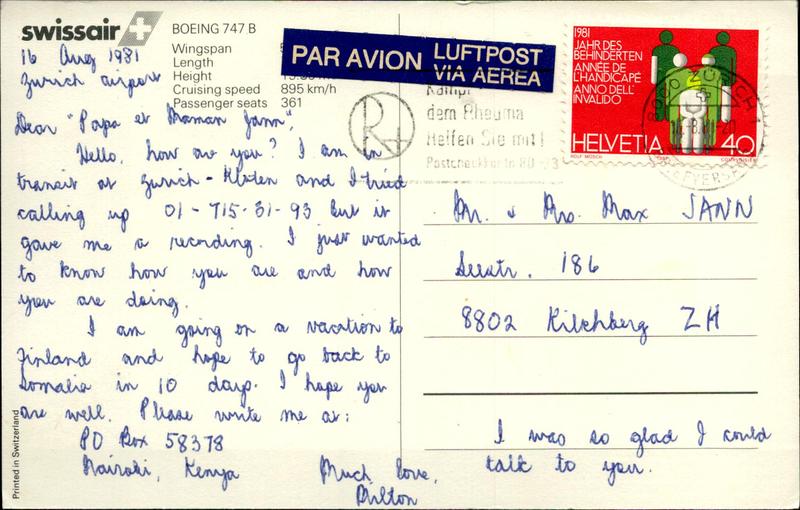 swissair
BOEING 747 B
16 Aug 1981
Zurich airport
Wingspan
Length
Height
Cruising speed 895 km/h
Passenger seats 361
PAR AVION LUFTPOST
VIA AEREA
Kampf
dem Rheuma
Helfen Sie mit!
Postcheckkonto 80
1981
JAHR DES
BEHINDERTEN
ANNÉE DE
L'HANDICAPÉ
ANNO DELL'
INVALIDO
HELVETIA 40
ROLF MÖSCH
COURVOISIER
8000 ZÜRICH 1
Dear "Papa et Maman Jann",
Hello, how are you? I am in
transit at Zurich - Kloten and I tried
calling up 01-715-31-93 but it
gave me a recording. I just wanted
to know how you are and how
you are doing.
I am going on a vacation to
Finland and hope to go back to
Somalia in 10 days. I hope you
are well. Please write me at:
PO Box 58378
Nairobi, Kenya
Much love,
Milton
Mr. & Mrs. Max JANN
Seestr. 186
8802 Kilchberg ZH
I was so glad I could
talk to you.
Printed in Switzerland